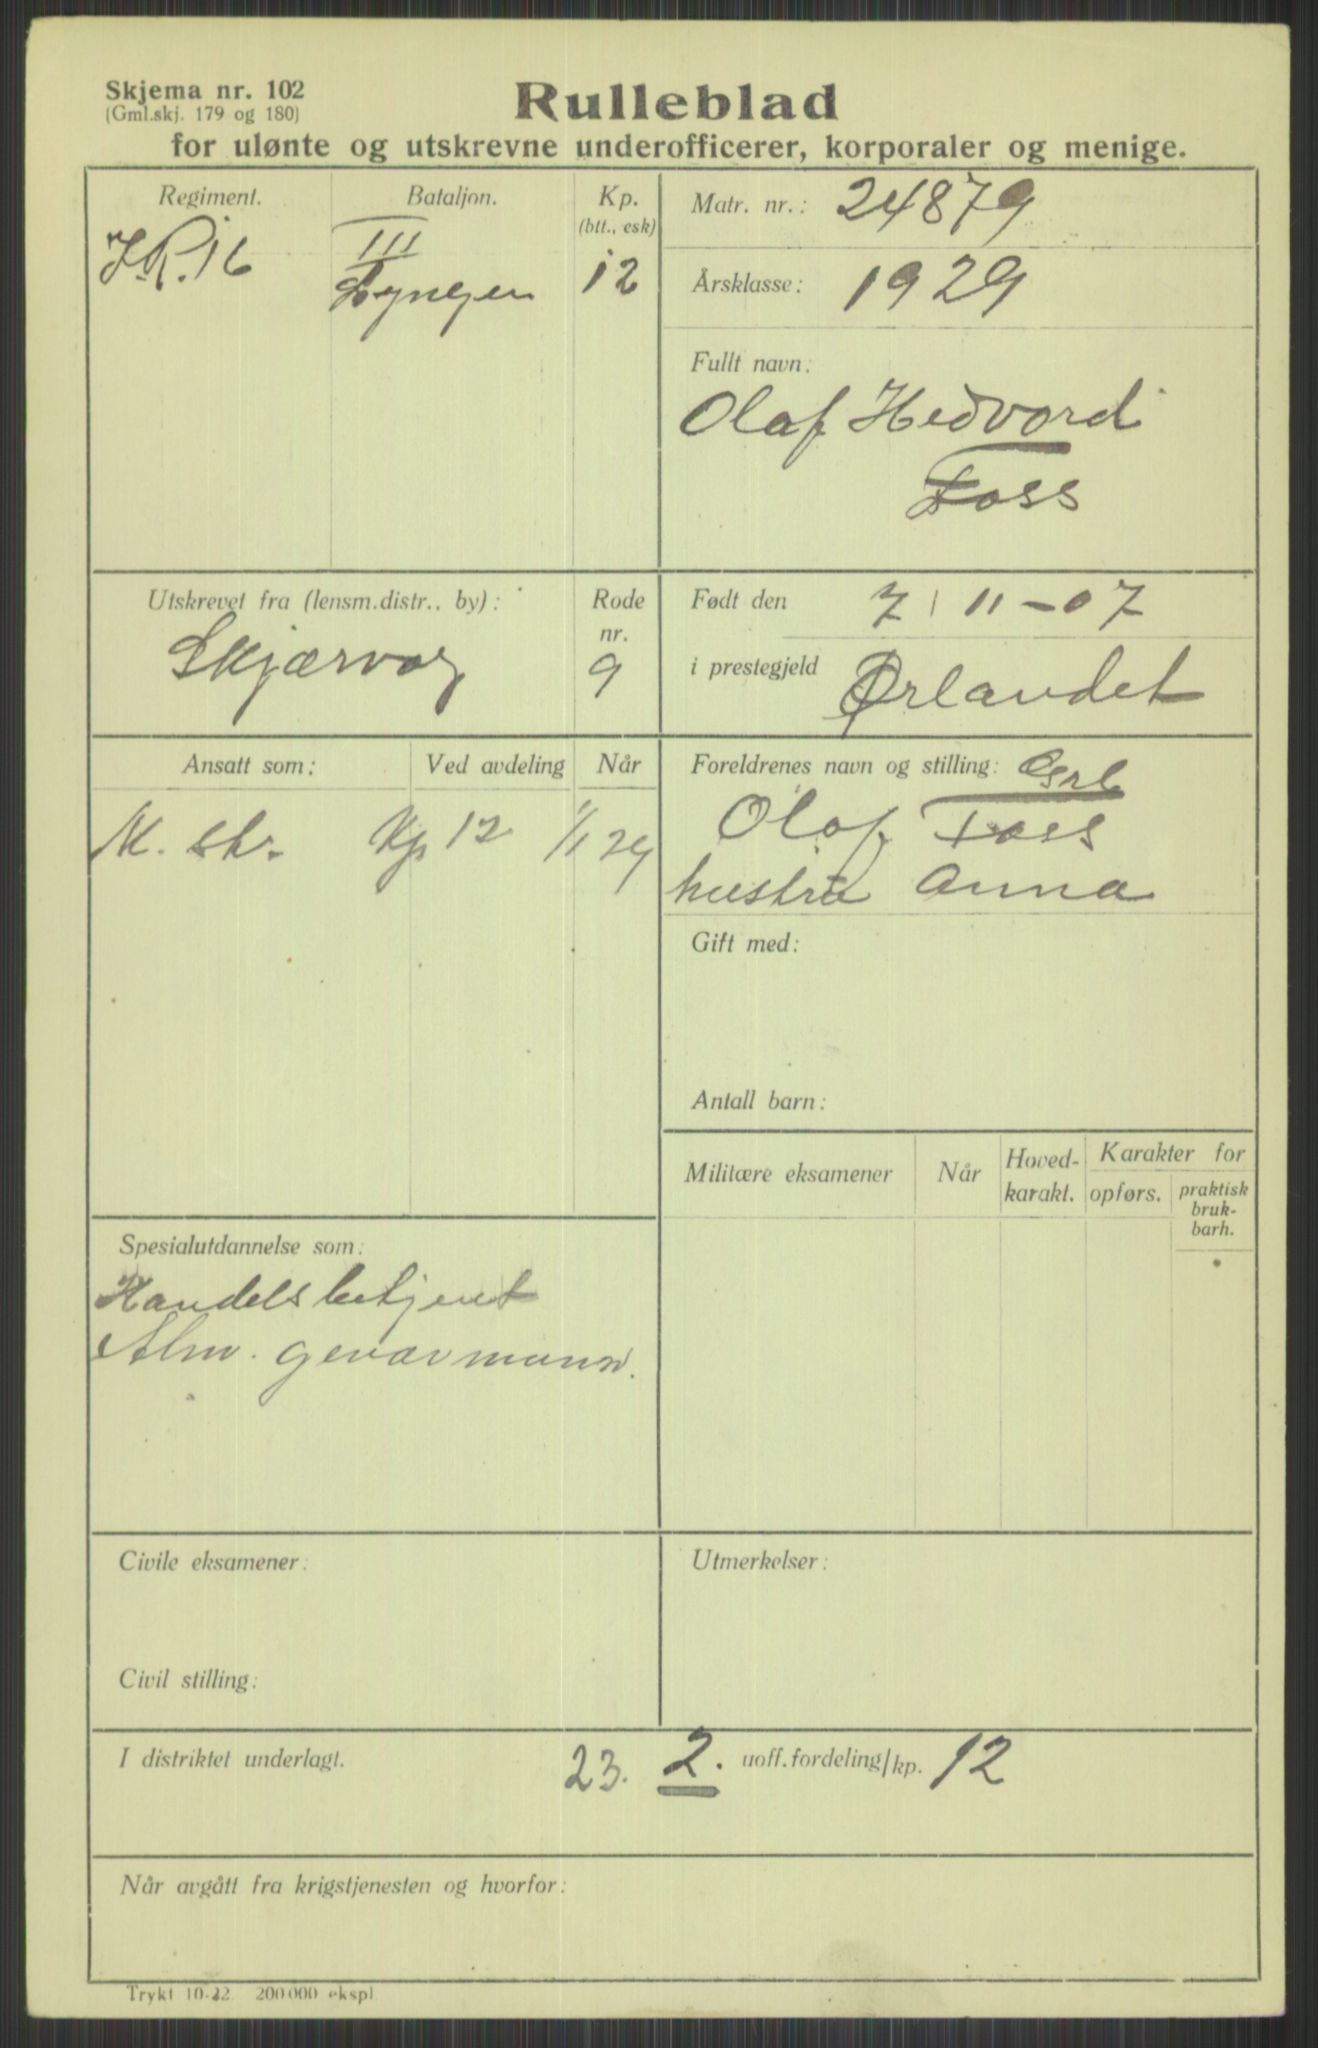 Skjema nr. 102
(Gml.skj. 179 og 180)
Rulleblad
for ulønte og utskrevne underofficerer, korporaler og menige.
Regiment.
I.R. 16
Bataljon.
III
Lyngen
Kp.
(btt., esk)
12
Matr. nr.: 24879
Årsklasse: 1929
Fullt navn:
Olaf Hedvord
Foss
Utskrevet fra (lensm.distr., by):
Skjærvøy
Rode
nr.
9
Født den 7/11-07
i prestegjeld Ørlandet
Ansatt som:
Ved avdeling
Når
M. skr. Kp 12 1/1 29
Foreldrenes navn og stilling:
Olaf Foss
hustru Anna
Gift med:
Antall barn:
Militære eksamener
Når
Hoved-
karakt.
Karakter for
opførs.
praktisk
bruk-
barh.
Spesialutdannelse som:
Handelsbetjent
Alm. geværmann.
Civile eksamener:
Civil stilling:
Utmerkelser:
I distriktet underlagt. 23. 2. uoff.fordeling/kp. 12
Når avgått fra krigstjenesten og hvorfor:
Trykt 10-22. 200000 ekspl